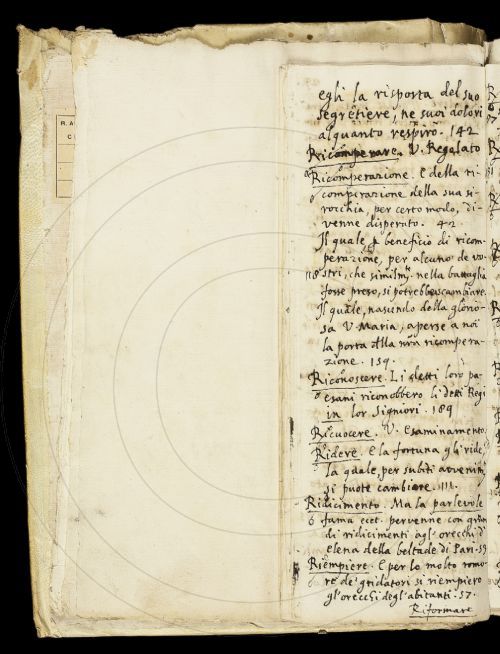 egli la risposta del suo
segretiere, ne suoi dolori
alquanto respirò. 142
Ricomperare. V. Regolato
Ricomperazione. E della ri-
comperazione della sua si-
rocchia, per certo modo, di-
venne disperato. 42.
Il quale, p beneficio di ricom-
perazione, per alcuno de vo-
118 stri, che similm.te nella battaglia
fosse preso, si potrebbe scambiare.
Il quale, nascendo della glorio-
sa V. Maria, aperse a noi
la porta della nra ricompera-
zione. 159.
Riconoscere. Li detti loro pa-
esani riconobbero li detti Regi
in lor Signiori. 189
Ricuocere. V. Esaminamento.
Ridere. E la fortuna gli ride,
la quale, per subiti avvenim.ti
si puote cambiare. 111.
Ridicimento. Ma la parlevole
fama ecct. pervenne con
di ridicimenti agl' orecchi d'
elena della beltade di Pari. 59
Riempiere. E per lo molto romo-
re de' gridatori si riempiero
gl' orecchi degl' abitanti. 57.
Riformare
R. A
C